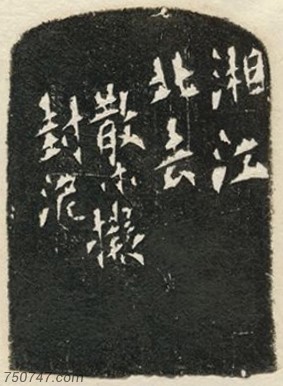 湘江
北去
散木擬
封泥
750747.com